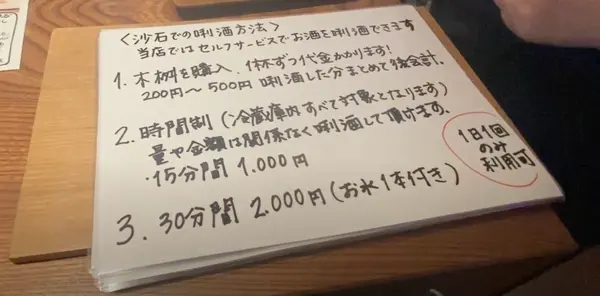 〈沙石での唎酒方法〉
当店ではセルフサービスでお酒を唎酒できます
1. 木桝を購入、1杯ずつ代金かかります!
200円〜500円 唎酒した分まとめて後会計。
2. 時間制(冷蔵庫内すべて対象となります)
量や金額は関係なく唎酒して頂けます。
・15分間 1.000円
3. 30分間 2.000円(お水1本付き)
1日1回
のみ
利用可